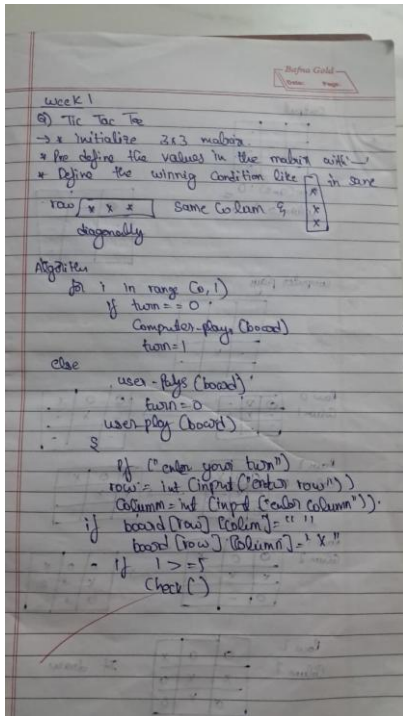 Bafna Gold
Date: Page:
Week 1
Q) Tic Tac Toe
→ * initialize 3x3 matrix
* Pre define the values in the matrix with '-'
* Define the winnig Condition like * * * in same
row * * * same Colam &
diagonally
Algorithm
for i in range (0, 1)
if turn == 0
Computer-plays (board)
turn=1
else
user-Plays (board)
turn=0
user play (board)
{
Pf ("enter your turn")
row = int (input ("enter row"))
Column = int (input ("enter column")).
if board [row] [colum] = " "
board [row] [column] = "X"
if i >= 5
Check ()